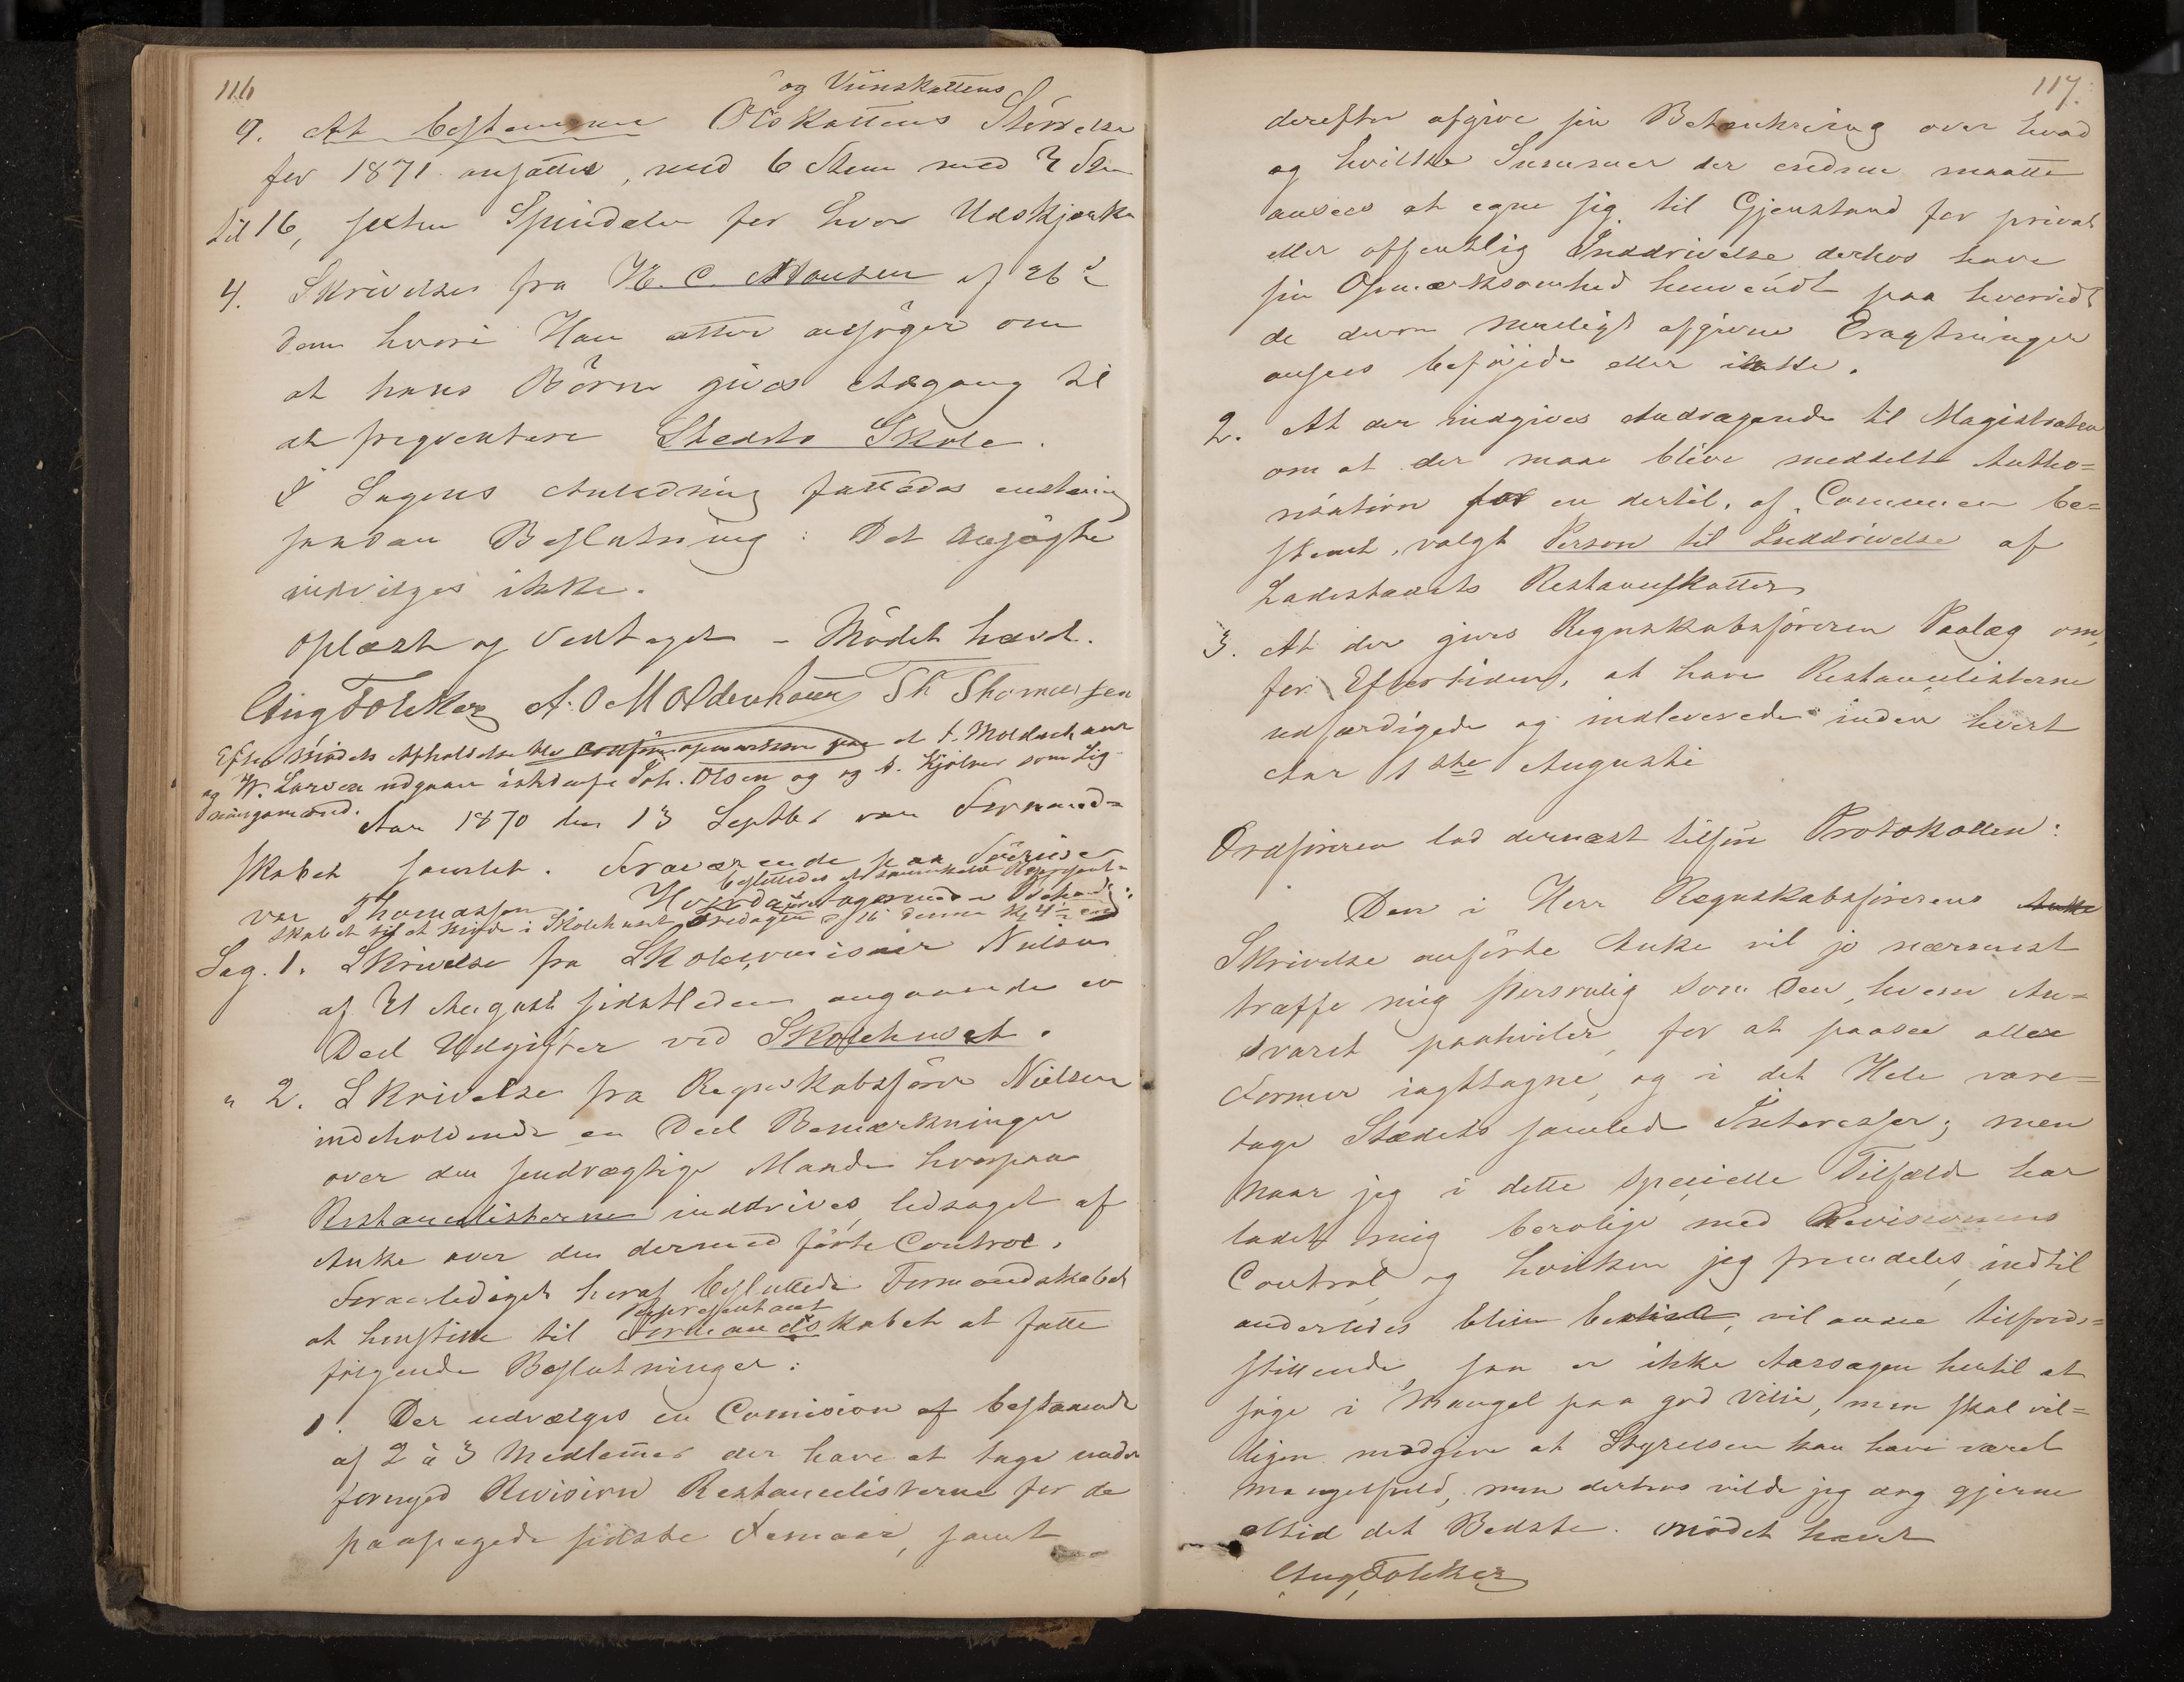 116
og Viinskattens
9. At bestemme Ølskattens Större
for 1871 ansattes, med 6 Stem mod 3 Stem
til 16, sexten Spindaler for hver Udskjænker
4. Skrivelse fra H. C. Hansen af 26d
dem hvori Han atter ansöger om
at hans Börn gives Adgang til
at freqventere Stedets Skole.
I Sagens Anledning fattedes enstemig
saadan Beslutning: Det Ansögte
indvilges ikke.
Oplæst og Vedtaget – Mödet hævet.
Aug Folkker A. O Moldenhauer Th Thomassen
Efter Mödets Afholdelse blev opmærksom paa at A. Moldenhauer
og W. Larsen udgaaer istedenfor Joh. Olsen og og A. Kjölner som Lig
ningsmænd.
Aar 1870 den 13 Septbr var Formand-
skabet samlet. Fraværende paa Reise
besluttedes at sammenkalde Repræsent-
var Thomassen. Hvorda foretages Behandl:
skabet til et Möde i Skolehuset Fredagen d 16 dennes Kl 4½ em
Sag. 1. Skrivelse fra Skolecomisair Nielsen
af 31 August sidstleden angaaende en
Deel Udgifter ved Skolehuset.
" 2. Skrivelse fra Regnskabsförer Nielsen
indeholdende en Deel Bemærkninger
over den sendrægtige Maade hvorpaa
Restancelisterne inddrives, ledsaget af
Anke over den dermed förte Control.
Foranlediget heraf besluttede Formandskabet
Repræsentant
at henstille til Formandskabet at fatte
fölgende Beslutninger:
1. Der udvælges en Comision af bestaaende
af 2 à 3 Medlemer der have at tage under
fornyed Revision Restancelisterne for de
paapegede sidste Femaar, samt
117.
derefter afgive sin Betænkning over hvad
og hvilke Summer der endnu maatte
ansees at egne sig til Gjenstand for privat
eller offentlig Inddrivelse derhos have
sin Opmærksomhed henvendt paa hvorvidt
de derom meeligt afgivne Eragtninger
ansees beföjede eller ikke.
2. At der indgives Andragende til Magistraten
om at der maa blive meddelt Autho=
risation for en dertil, af Communen be=
stemt, valgt Person til Inddrivelse af
Ladestedets Restanceskatter
3. At der gives Regnskabsföreren Paalæg om,
for Eftertiden, at have Restancelisterne
udfærdigede og indleverede inden hvert
Aar 1ste Augusti
Ordföreren lod dernæst tilföre Protokollen:
Den i Herr Regnskabsförerens Anke
Skrivelse anförte Anke vil jo nærmest
træffe mig personlig som Den, hvem An-
svaret paahviler, for at paasee alle
Former iagttagne, og i det Hele vare=
tage Stædets samlede Interesser; men
naar jeg i dette specielle Tilfælde har
ladet mig berolige med Revisionens
Control og hvilken jeg fremdeles, indtil
anderledes bliver bestemt, vil ansee tilfreds=
stillende, saa er ikke Aarsagen hertil at
söge i Mangel paa god Villie, men skal vil=
ligen medgive at Styrelsen kan have været
mangelfuld, men derhos vilde jeg dog gjerne
altid det Bedste. Mödet hævet
Aug Folkker